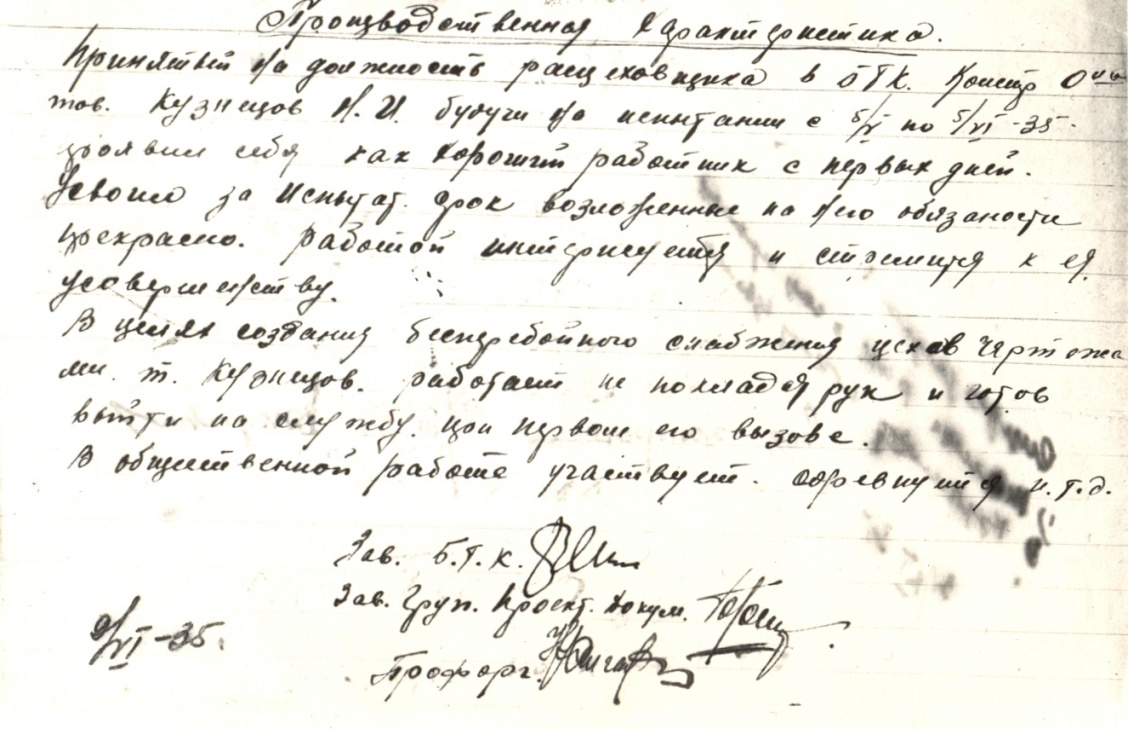 Производственная характеристика.
Принятый на должность расцеховщика в БТК.
тов. Кузнецов Н. И. будучи на испытании с 5/V по 5/VI-35.
проявил себя как хороший работник с первых дней.
Усвоил за испытат. срок возложенные на него обязаности
прекрасно. работой интересуется и стремится к ея
усовершенству.
В целях создания бесперебойного снабжения цехов чертежа
ми. т. Кузнецов. работает не покладая рук и готов
выйти на службу. при первом его вызове.
В общественной работе участвует. соревнуется и.т.д.
Зав. Б.Т.К.
Зав. Груп. Проект. Докум.
9/VI-35.
Профорг.